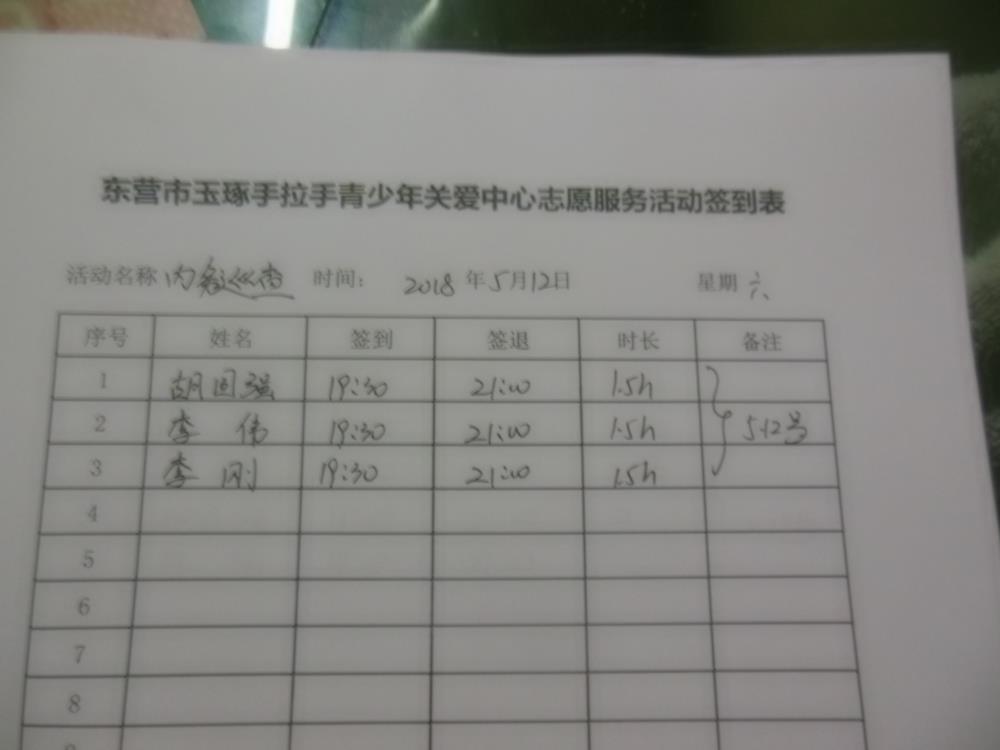 东营市玉琢手拉手青少年关爱中心志愿服务活动签到表
活动名称 内 巡查 时间： 2018 年 5月12日 星期 六
序号 姓名 签到 签退 时长 备注
1 胡国强 19:30 21:00 1.5h
2 李伟 19:30 21:00 1.5h 5.12号
3 李刚 19:30 21:00 1.5h
4
5
6
7
8